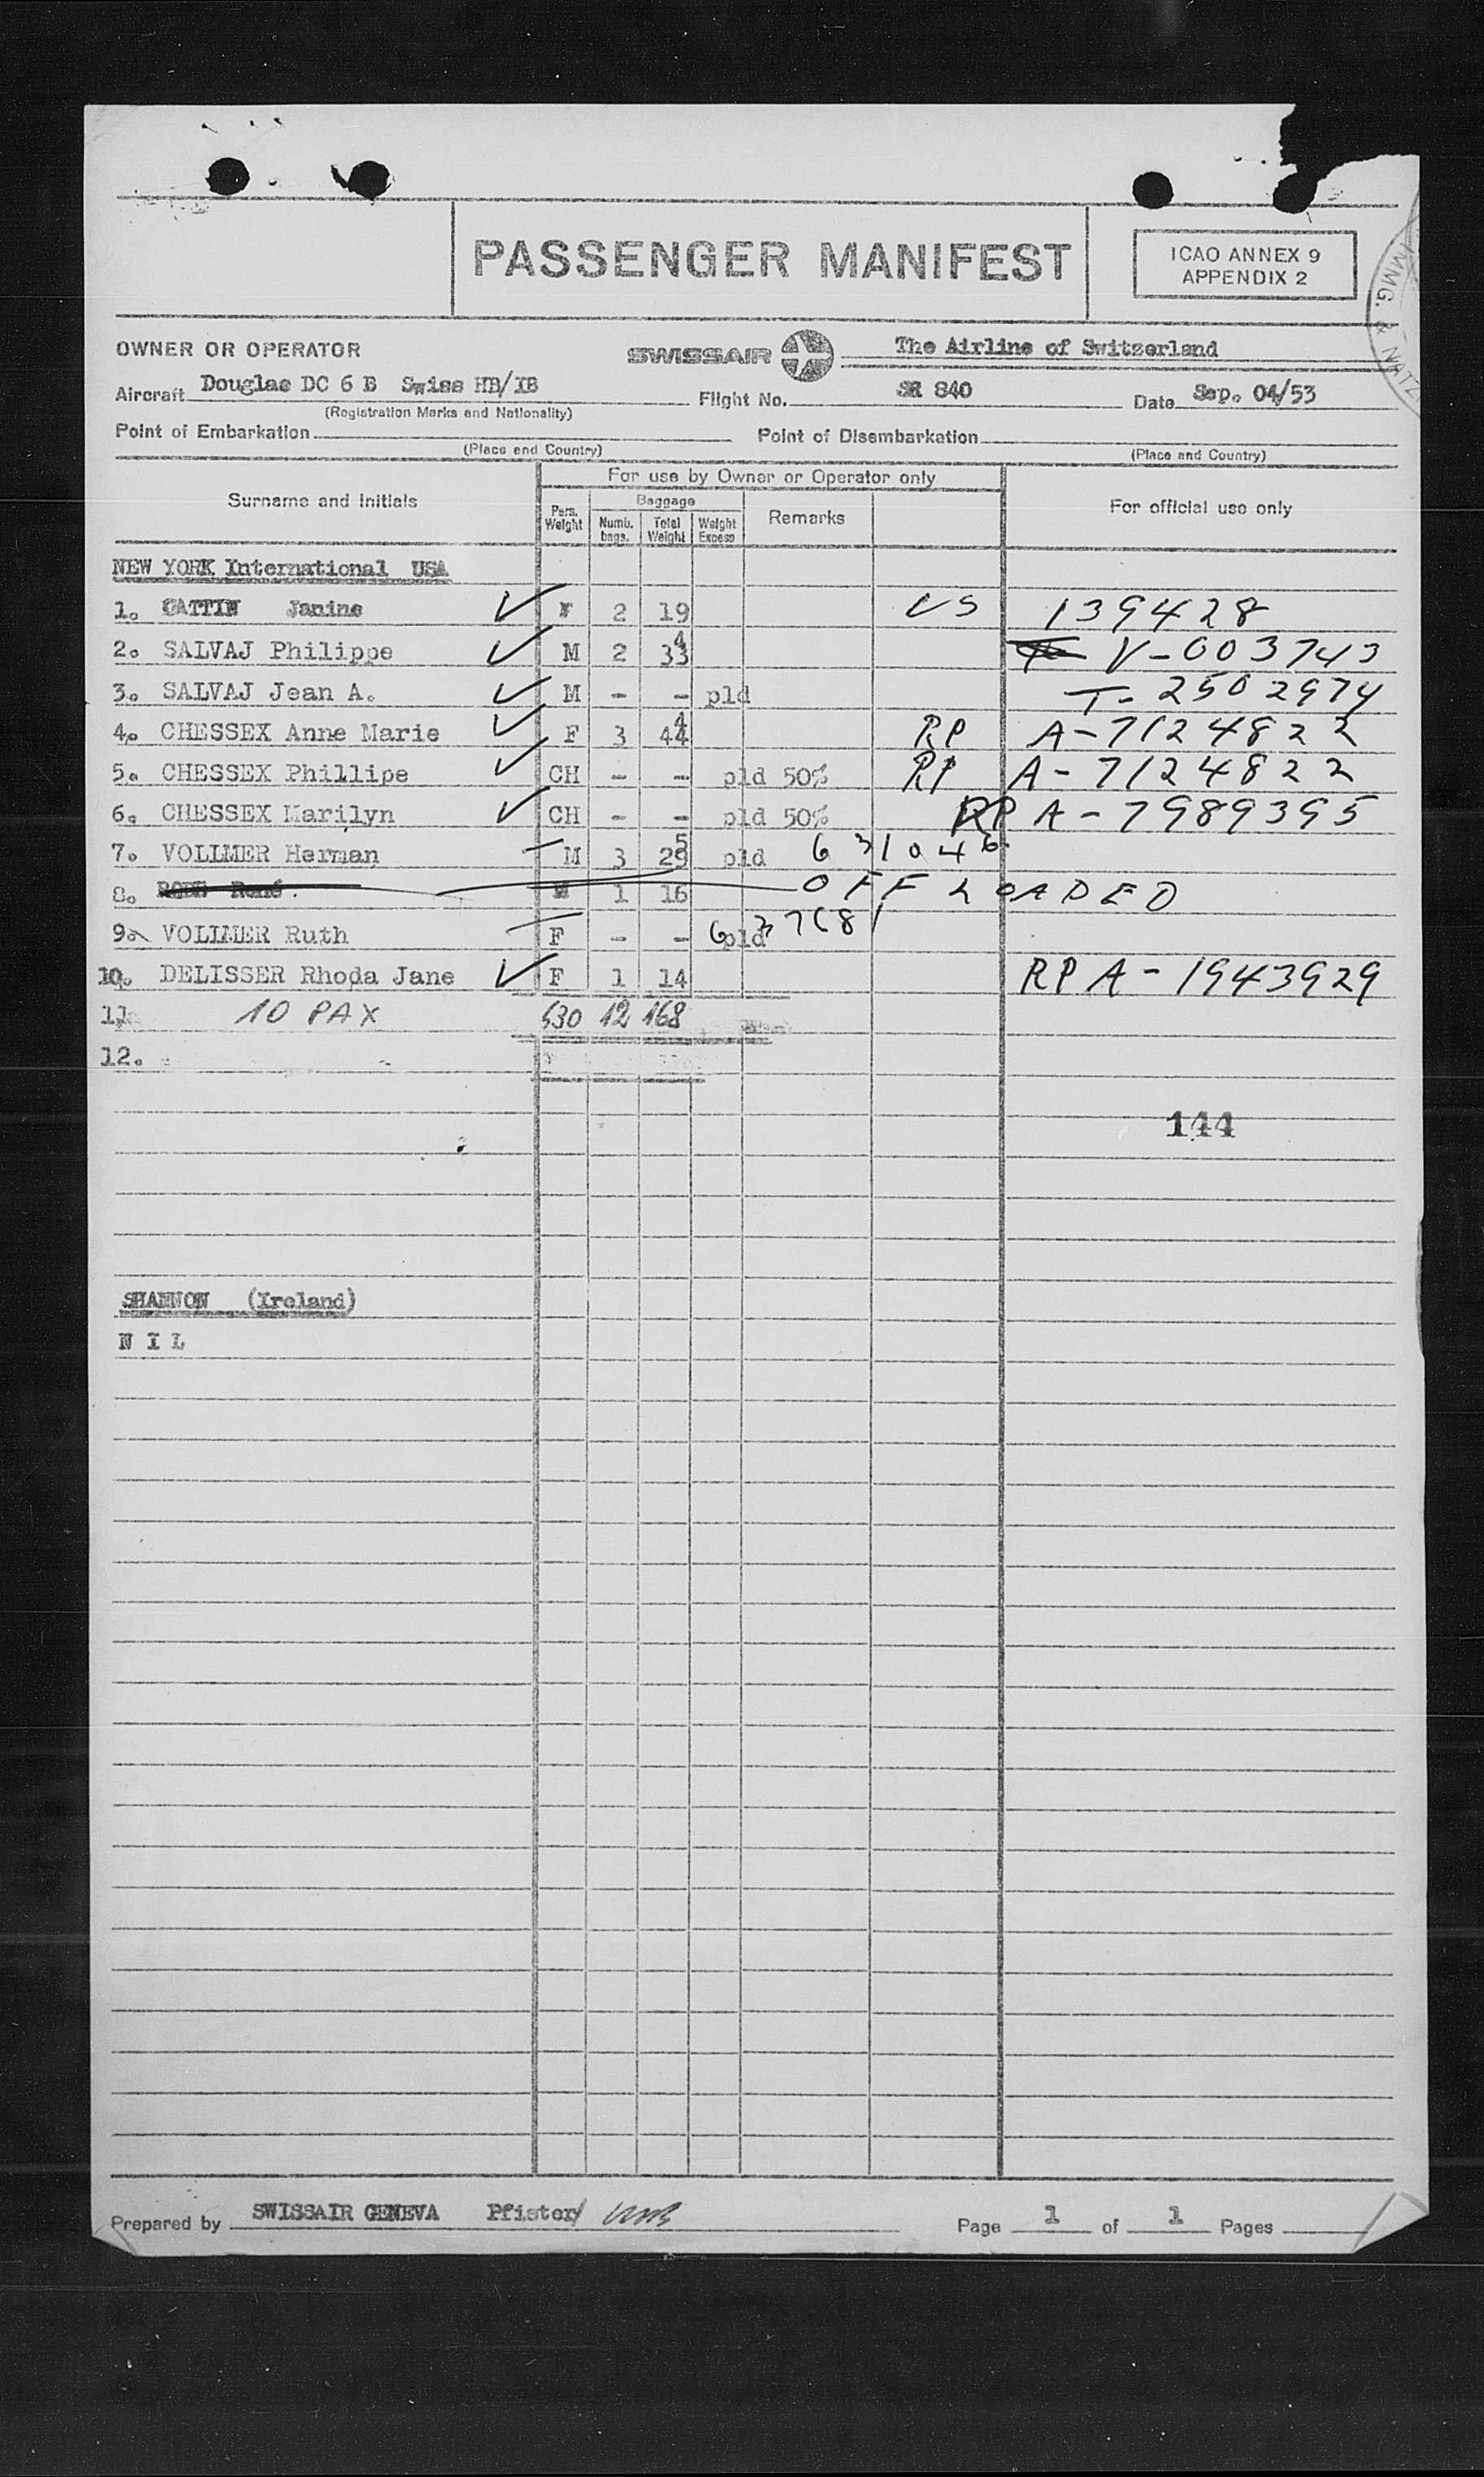 PASSENGER MANIFEST
ICAO ANNEX 9
APPENDIX 2
IMMG. & NATZ
OWNER OR OPERATOR SWISSAIR The Airline of Switzerland
Aircraft Douglas DC 6 B Swiss HB/IB Flight No. SR 840 Date Sep. 04/53
(Registration Marks and Nationality)
Point of Embarkation Point of Disembarkation
(Place and Country) (Place and Country)
For use by Owner or Operator only
Surname and Initials Pers. Weight Baggage Numb. bags. Total Weight Weight Excess Remarks For official use only
NEW YORK International USA
1. CATTIN Janine F 2 19 US 139428
2. SALVAJ Philippe M 2 33 4 V-003743
3. SALVAJ Jean A. M - - pld T-2502974
4. CHESSEX Anne Marie F 3 44 4 RP A-7124822
5. CHESSEX Phillipe CH - - pld 50% RP A-7124822
6. CHESSEX Marilyn CH - - pld 50% RP A-7989395
7. VOLLMER Herman M 3 29 5 pld 631046
8. René. M 1 16 OFF LOADED
9. VOLLMER Ruth F - - pld
10. DELISSER Rhoda Jane F 1 14 RP A-1943929
11 10 PAX 530 12 168
12.
144
SHANNON (Ireland)
N I L
Prepared by SWISSAIR GENEVA Pfister/ Page 1 of 1 Pages